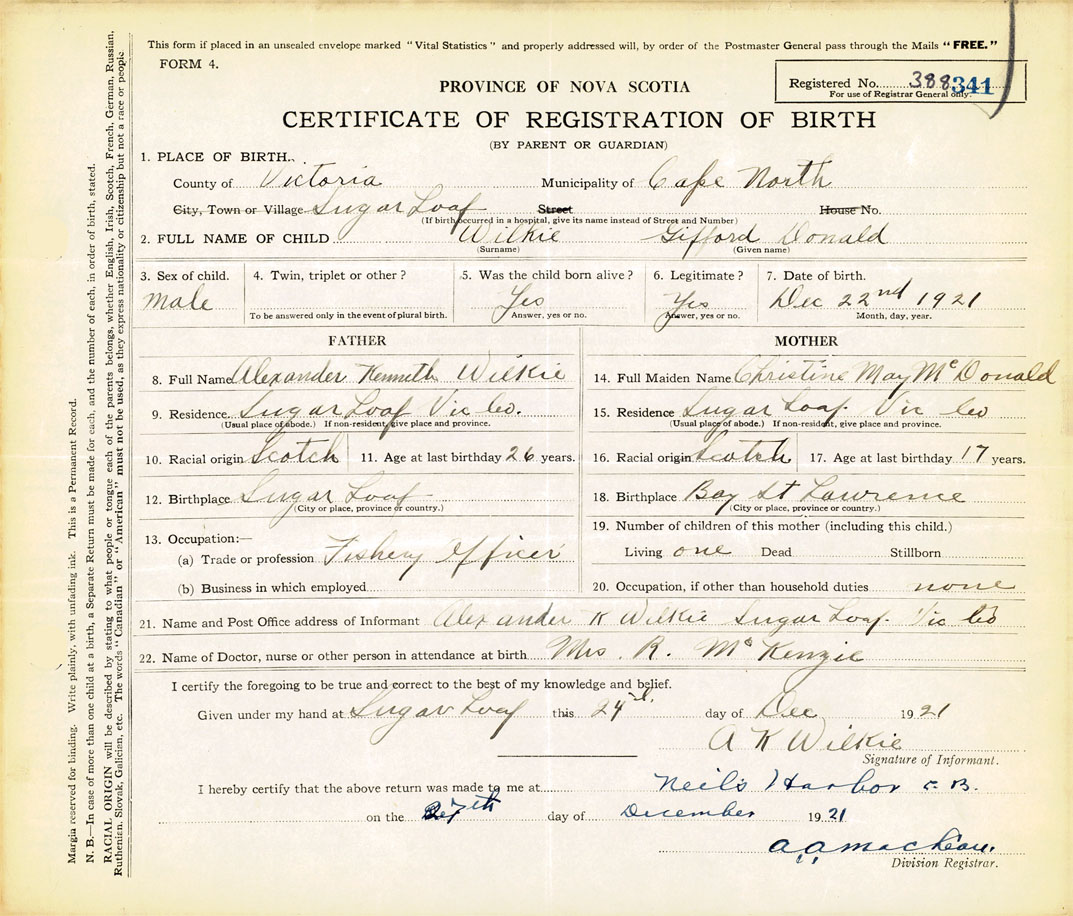 This form if placed in an unsealed envelope marked "Vital Statistics" and properly addressed will, by order of the Postmaster General pass through the Mails "FREE."
FORM 4.
Registered No. 388 341
For use of Registrar General only.
PROVINCE OF NOVA SCOTIA
CERTIFICATE OF REGISTRATION OF BIRTH
(BY PARENT OR GUARDIAN)
1. PLACE OF BIRTH.
County of Victoria Municipality of Cape North
City, Town or Village Sugar Loaf Street House No.
(If birth occurred in a hospital, give its name instead of Street and Number)
2. FULL NAME OF CHILD Wilkie Gifford Donald
(Surname) (Given name)
3. Sex of child. 4. Twin, triplet or other? 5. Was the child born alive? 6. Legitimate? 7. Date of birth.
Male Yes Yes Dec 22nd 1921
To be answered only in the event of plural birth. Answer, yes or no. Answer, yes or no. Month, day, year.
FATHER
8. Full Name Alexander Kenneth Wilkie
9. Residence Sugar Loaf Vic Co.
(Usual place of abode.) If non-resident, give place and province.
10. Racial origin Scotch 11. Age at last birthday 26 years.
12. Birthplace Sugar Loaf
(City or place, province or country.)
13. Occupation:—
(a) Trade or profession Fishery Officer
(b) Business in which employed
MOTHER
14. Full Maiden Name Christine May McDonald
15. Residence Sugar Loaf. Vic Co
(Usual place of abode.) If non-resident, give place and province.
16. Racial origin Scotch 17. Age at last birthday 17 years.
18. Birthplace Bay St Lawrence
(City or place, province or country.)
19. Number of children of this mother (including this child.)
Living one Dead Stillborn
20. Occupation, if other than household duties none
21. Name and Post Office address of Informant Alexander K Wilkie Sugar Loaf. Vic Co
22. Name of Doctor, nurse or other person in attendance at birth Mrs. R. McKenzie
I certify the foregoing to be true and correct to the best of my knowledge and belief.
Given under my hand at Sugar Loaf this 24 day of Dec 1921
A K Wilkie
Signature of Informant.
I hereby certify that the above return was made to me at Neil's Harbor C. B.
on the 27th day of December 1921
A. A. MacLean.
Division Registrar.
Margin reserved for binding. Write plainly, with unfading ink. This is a Permanent Record.
N. B.—In case of more than one child at a birth, a Separate Return must be made for each, and the number of each, in order of birth, stated.
RACIAL ORIGIN will be described by stating to what people or tongue each of the parents belongs, whether English, Irish, Scotch, French, German, Russian,
Ruthenian, Slovak, Galician, etc. The words "Canadian" or "American" must not be used, as they express nationality or citizenship but not a race or people